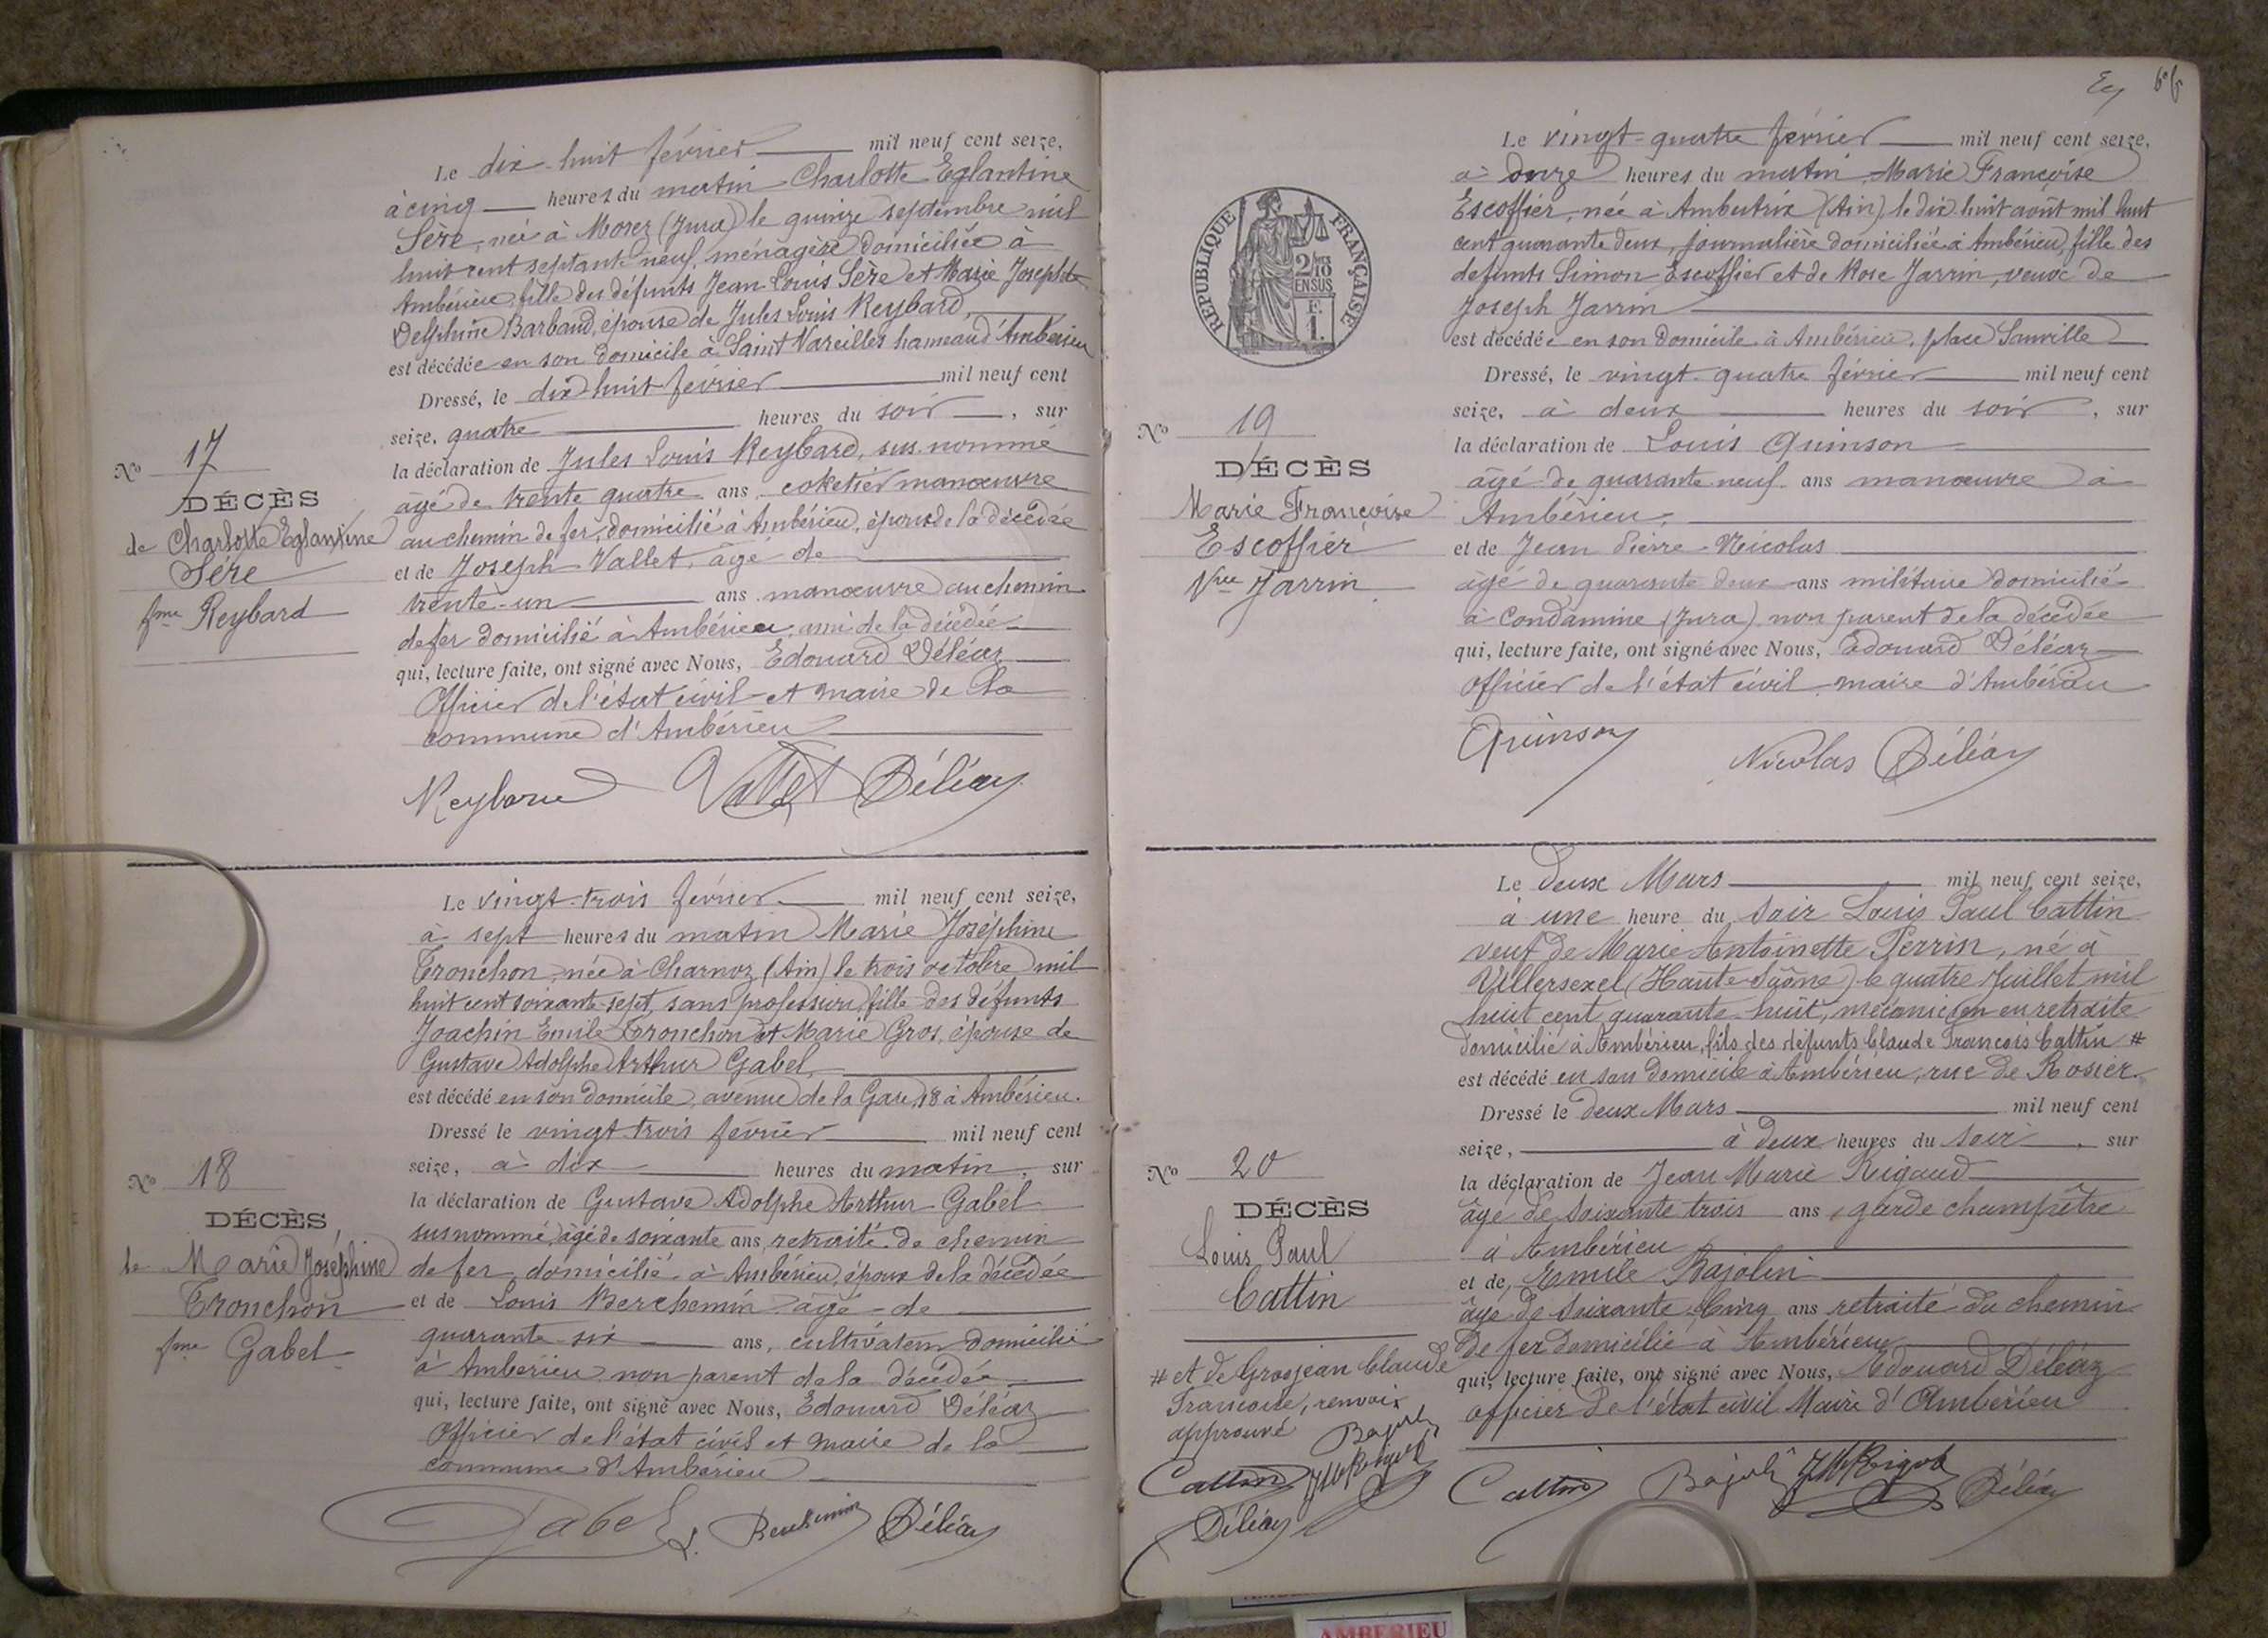 Le dix-huit février mil neuf cent seize,
à cinq heures du matin Charlotte Eglantine
Sère, née à Morez (Jura) le quinze septembre mil
huit cent septante neuf, ménagère domiciliée à
Ambérieu, fille des défunts Jean Louis Sère et Marie Josephte
Delphine Barbaud, épouse de Jules Louis Reybard,
est décédée en son domicile à Saint Vareilles hameau d'Ambérieu
Dressé, le dix huit février mil neuf cent
seize, quatre heures du soir, sur
la déclaration de Jules Louis Reybard, sus nommé
âgé de trente quatre ans coketier manœuvre
au chemin de fer, domicilié à Ambérieu, époux de la décédée
et de Joseph Vallet, âgé de
trente-un ans manœuvre au chemin
de fer domicilié à Ambérieu, ami de la décédée
qui, lecture faite, ont signé avec Nous, Edouard Déléaz
Officier de l'état civil et maire de la
commune d'Ambérieu
Reybard Vallet Déléaz
No 17
DÉCÈS
de Charlotte Eglantine
Sére
fme Reybard
Le vingt-trois février mil neuf cent seize,
à sept heures du matin Marie Joséphine
Tronchon, née à Charnoz (Ain) le trois octobre mil
huit cent soixante-sept, sans profession, fille des défunts
Joachin Emile Tronchon et Marie Gros, épouse de
Gustave Adolphe Arthur Gabel,
est décédé en son domicile, avenue de la Gare, 18 à Ambérieu.
Dressé le vingt trois février mil neuf cent
seize, à dix heures du matin, sur
la déclaration de Gustave Adolphe Arthur Gabel
susnommé, âgé de soixante ans, retraité de chemin
de fer, domicilié à Ambérieu, époux de la décédée
et de Louis Berchemin âgé de
quarante-six ans, cultivateur domicilié
à Ambérieu non parent de la décédée
qui, lecture faite, ont signé avec Nous, Edouard Déléaz
Officier de l'état civil et maire de la
commune d'Ambérieu
Gabel L. Berchemin Déléaz
No 18
DÉCÈS
de Marie Joséphine
Tronchon
fme Gabel
66
Le vingt-quatre février mil neuf cent seize,
à onze heures du matin, Marie Françoise
Escoffier, née à Ambutrix (Ain), le dix huit août mil huit
cent quarante deux, journalière domiciliée à Ambérieu, fille des
defunts Simon Escoffier et de Rose Jarrin, veuve de
Joseph Jarrin
est décédée en son domicile à Ambérieu, place Sanville
Dressé, le vingt-quatre février mil neuf cent
seize, à deux heures du soir, sur
la déclaration de Louis Quinson
âgé de quarante neuf ans manœuvre à
Ambérieu,
et de Jean Pierre Nicolas
âgé de quarante deux ans militaire domicilié
à Condamine (Jura) non parent de la décédée
qui, lecture faite, ont signé avec Nous, Edouard Déléaz
Officier de l'état civil maire d'Ambérieu
Quinson Nicolas Déléaz
RÉPUBLIQUE FRANÇAISE
2/10
EN SUS
F.
1.
No 19
DÉCÈS
Marie Françoise
Escoffier
Vve Jarrin
Le deux Mars mil neuf cent seize,
à une heure du soir Louis Paul Cattin
veuf de Marie Antoinette Perrin, né à
Villersexel (Haute-Saône) le quatre Juillet mil
huit cent quarante-huit, mécanicien en retraite
domicilié à Ambérieu, fils des défunts Claude François Cattin #
est décédé en son domicile à Ambérieu, rue de Rosier.
Dressé le deux Mars mil neuf cent
seize, à deux heures du soir, sur
la déclaration de Jean Marie Rigaud
âgé de soixante trois ans, garde champêtre
à Ambérieu
et de, Emile Bajolin
âge de soixante cinq ans retraité du chemin
de fer domicilié à Ambérieu
qui, lecture faite, ont signé avec Nous, Edouard Déléaz
officier de l'état civil Maire d'Ambérieu
Cattin Bajolin JM Rigod Déléaz
No 20
DÉCÈS
Louis Paul
Cattin
# et de Grosjean Claude
Francoise, renvoix
approuvé Bajolin
Cattin JM Rigod
Déléaz
AMBERIEU